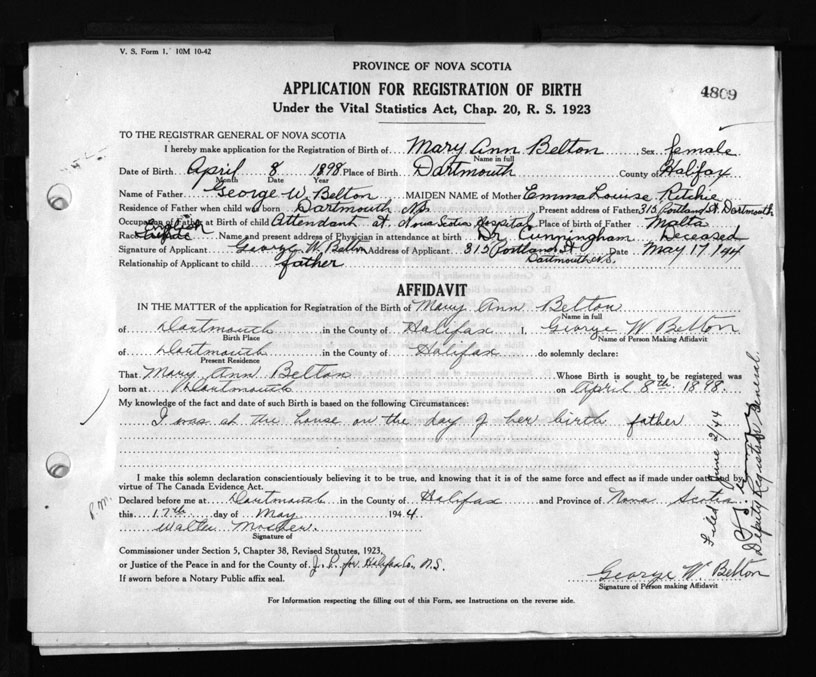 V. S. Form 1. 10M 10-42
PROVINCE OF NOVA SCOTIA
APPLICATION FOR REGISTRATION OF BIRTH
4809
Under the Vital Statistics Act, Chap. 20, R. S. 1923
TO THE REGISTRAR GENERAL OF NOVA SCOTIA
I hereby make application for the Registration of Birth of Mary Ann Belton Sex female
Name in full
Date of Birth April 8 1898 Place of Birth Dartmouth County of Halifax
Month Date Year
Name of Father George W. Belton MAIDEN NAME of Mother Emma Louise Ritchie
Residence of Father when child was born Dartmouth N.S. Present address of Father 315 Portland St. Dartmouth
Occupation of Father at Birth of child Attendant at Nova Scotia Hospital Place of birth of Father Malta
English
Race Name and present address of Physician in attendance at birth Dr Cunningham Deceased
Signature of Applicant George W. Belton Address of Applicant 315 Portland St Date May 17/44
Dartmouth N.S.
Relationship of Applicant to child father
AFFIDAVIT
IN THE MATTER of the application for Registration of the Birth of Mary Ann Belton
Name in full
of Dartmouth in the County of Halifax I, George W Belton
Birth Place Name of Person Making Affidavit
of Dartmouth in the County of Halifax do solemnly declare:
Present Residence
That Mary Ann Belton Whose Birth is sought to be registered was
born at Dartmouth on April 8th. 1898.
My knowledge of the fact and date of such Birth is based on the following Circumstances:
I was at the house on the day of her birth father
I make this solemn declaration conscientiously believing it to be true, and knowing that it is of the same force and effect as if made under oath and by
virtue of The Canada Evidence Act.
P.M.
Declared before me at Dartmouth in the County of Halifax and Province of Nova Scotia
this 17th day of May 1944.
Walter Mosher.
Signature of
Commissioner under Section 5, Chapter 38, Revised Statutes, 1923.
or Justice of the Peace in and for the County of J. P. for Halifax Co. N.S.
If sworn before a Notary Public affix seal.
George W. Belton
Signature of Person making Affidavit
For Information respecting the filling out of this Form, see Instructions on the reverse side.
Filed June 2/44
Deputy Registrar General